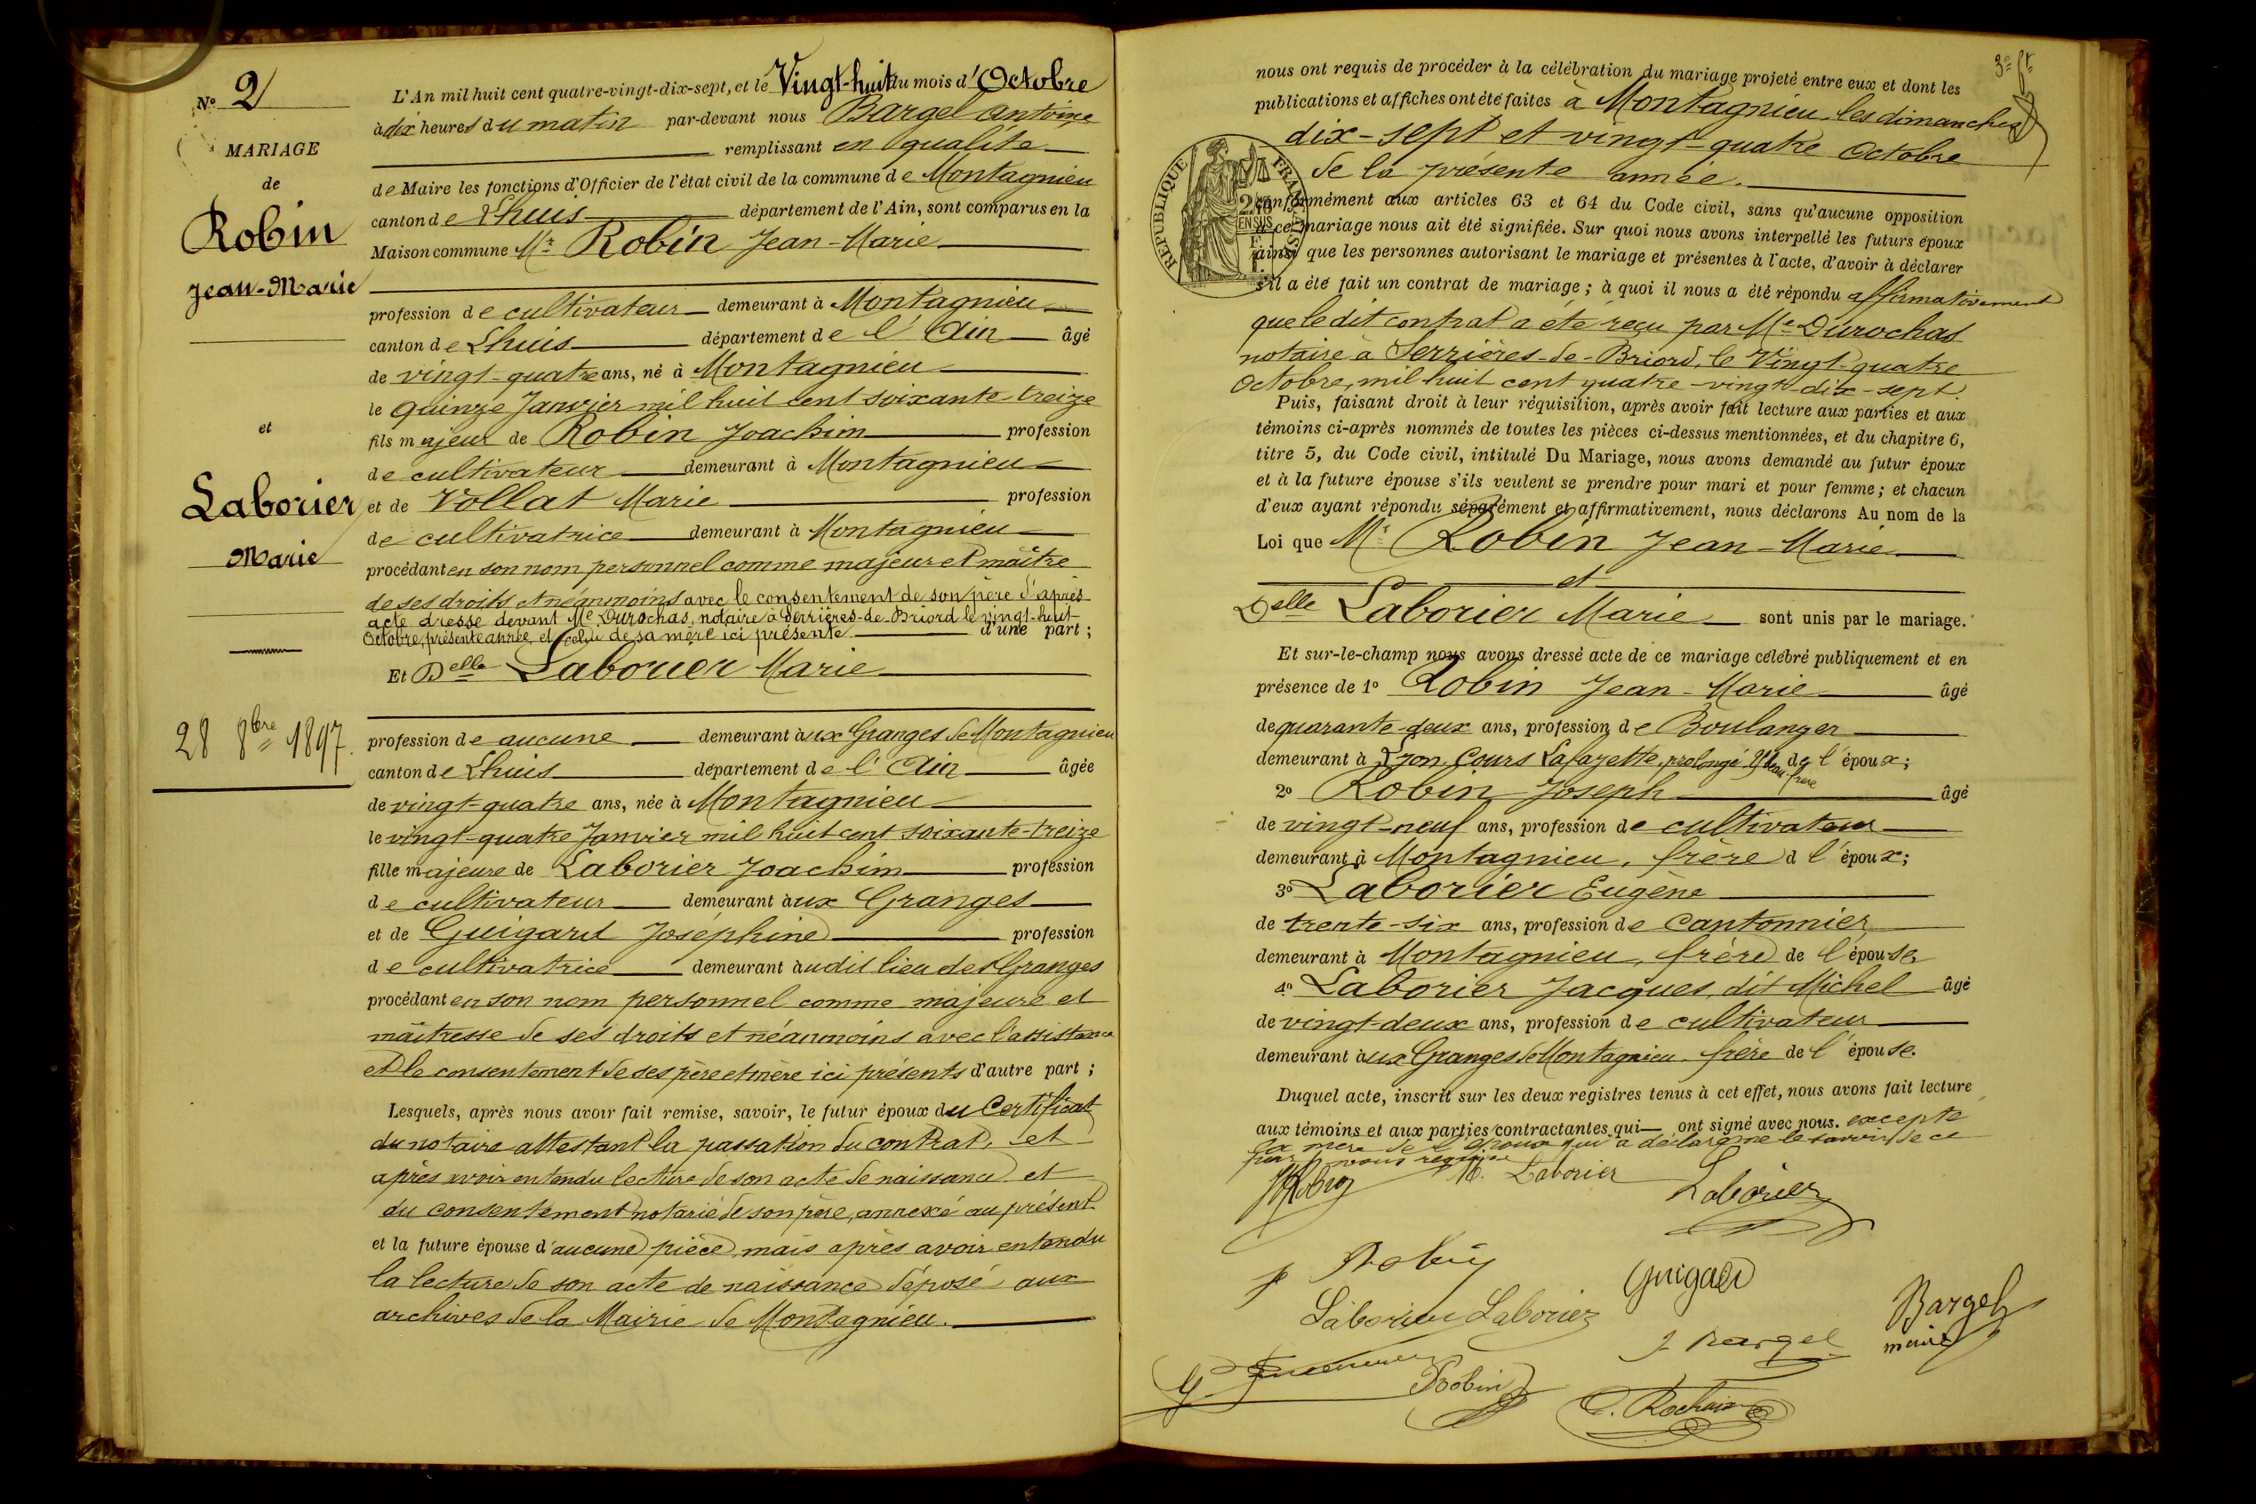 Nº 2
MARIAGE
de
Robin
Jean-Marie
et
Laborier
Marie
28 8bre 1897.
L'An mil huit cent quatre-vingt-dix-sept, et le Vingt-huit du mois d'Octobre
à dix heures du matin par-devant nous Bargel Antoine
remplissant en qualité
de Maire les fonctions d'Officier de l'état civil de la commune de Montagnieu
canton de Lhuis département de l'Ain, sont comparus en la
Maison commune Mr Robin Jean-Marie
profession de cultivateur demeurant à Montagnieu
canton de Lhuis département de l'Ain âgé
de vingt-quatre ans, né à Montagnieu
le quinze Janvier mil huit cent soixante-treize
fils majeur de Robin Joachim profession
de cultivateur demeurant à Montagnieu
et de Vollat Marie profession
de cultivatrice demeurant à Montagnieu
procédant en son nom personnel comme majeur et maître
de ses droits et néanmoins avec le consentement de son père d'après
acte dressé devant Me Durochas, notaire à Serrières-de-Briord le vingt-huit
Octobre, présente année et celui de sa mère ici présente d'une part ;
Et Delle Laborier Marie
profession de aucune demeurant aux Granges de Montagnieu
canton de Lhuis département de l'Ain âgée
de vingt-quatre ans, née à Montagnieu
le vingt-quatre Janvier mil huit cent soixante-treize
fille majeure de Laborier Joachim profession
de cultivateur demeurant aux Granges
et de Guigard Joséphine profession
de cultivatrice demeurant audit lieu des Granges
procédant en son nom personnel comme majeure et
maîtresse de ses droits et néanmoins avec l'assistance
et le consentement de ses père et mère ici présents d'autre part ;
Lesquels, après nous avoir fait remise, savoir, le futur époux du Certificat
du notaire attestant la passation du contrat, et
après avoir entendu lecture de son acte de naissance et
du consentement notarié de son père, annexé au présent
et la future épouse d'aucune pièce mais après avoir entendu
la lecture de son acte de naissance déposé aux
archives de la Mairie de Montagnieu.
nous ont requis de procéder à la célébration du mariage projeté entre eux et dont les
publications et affiches ont été faites à Montagnieu les dimanches
dix-sept et vingt-quatre Octobre
de la présente année.
RÉPUBLIQUE FRANÇAISE
conformément aux articles 63 et 64 du Code civil, sans qu'aucune opposition
à ce mariage nous ait été signifiée. Sur quoi nous avons interpellé les futurs époux
ainsi que les personnes autorisant le mariage et présentes à l'acte, d'avoir à déclarer
s'il a été fait un contrat de mariage ; à quoi il nous a été répondu affirmativement
que le dit contrat a été reçu par Me Durochas
notaire à Serrières-de-Briord, le Vingt-quatre
Octobre, mil huit cent quatre-vingt-dix-sept.
Puis, faisant droit à leur réquisition, après avoir fait lecture aux parties et aux
témoins ci-après nommés de toutes les pièces ci-dessus mentionnées, et du chapitre 6,
titre 5, du Code civil, intitulé Du Mariage, nous avons demandé au futur époux
et à la future épouse s'ils veulent se prendre pour mari et pour femme ; et chacun
d'eux ayant répondu séparément et affirmativement, nous déclarons Au nom de la
Loi que Mr Robin Jean-Marie
et
Delle Laborier Marie sont unis par le mariage.
Et sur-le-champ nous avons dressé acte de ce mariage célébré publiquement et en
présence de 1º Robin Jean-Marie âgé
de quarante-deux ans, profession de Boulanger
demeurant à Lyon, Cours Lafayette prolongé beau-frère de l'époux ;
2º Robin Joseph âgé
de vingt-neuf ans, profession de cultivateur
demeurant à Montagnieu, frère d l'époux ;
3º Laborier Eugène
de trente-six ans, profession de cantonnier
demeurant à Montagnieu, frère de l'épouse
4º Laborier Jacques, dit Michel âgé
de vingt-deux ans, profession de cultivateur
demeurant aux Granges de Montagnieu frère de l'épouse.
Duquel acte, inscrit sur les deux registres tenus à cet effet, nous avons fait lecture
aux témoins et aux parties contractantes qui ont signé avec nous. excepté
la mère de l'époux qui a déclaré ne le savoir de ce
par nous requise
JM Robin M. Laborier Laborier
J Robin Guigard
Laborier Laborier Bargel
J Bargel maire
Robin
C. Rochaix